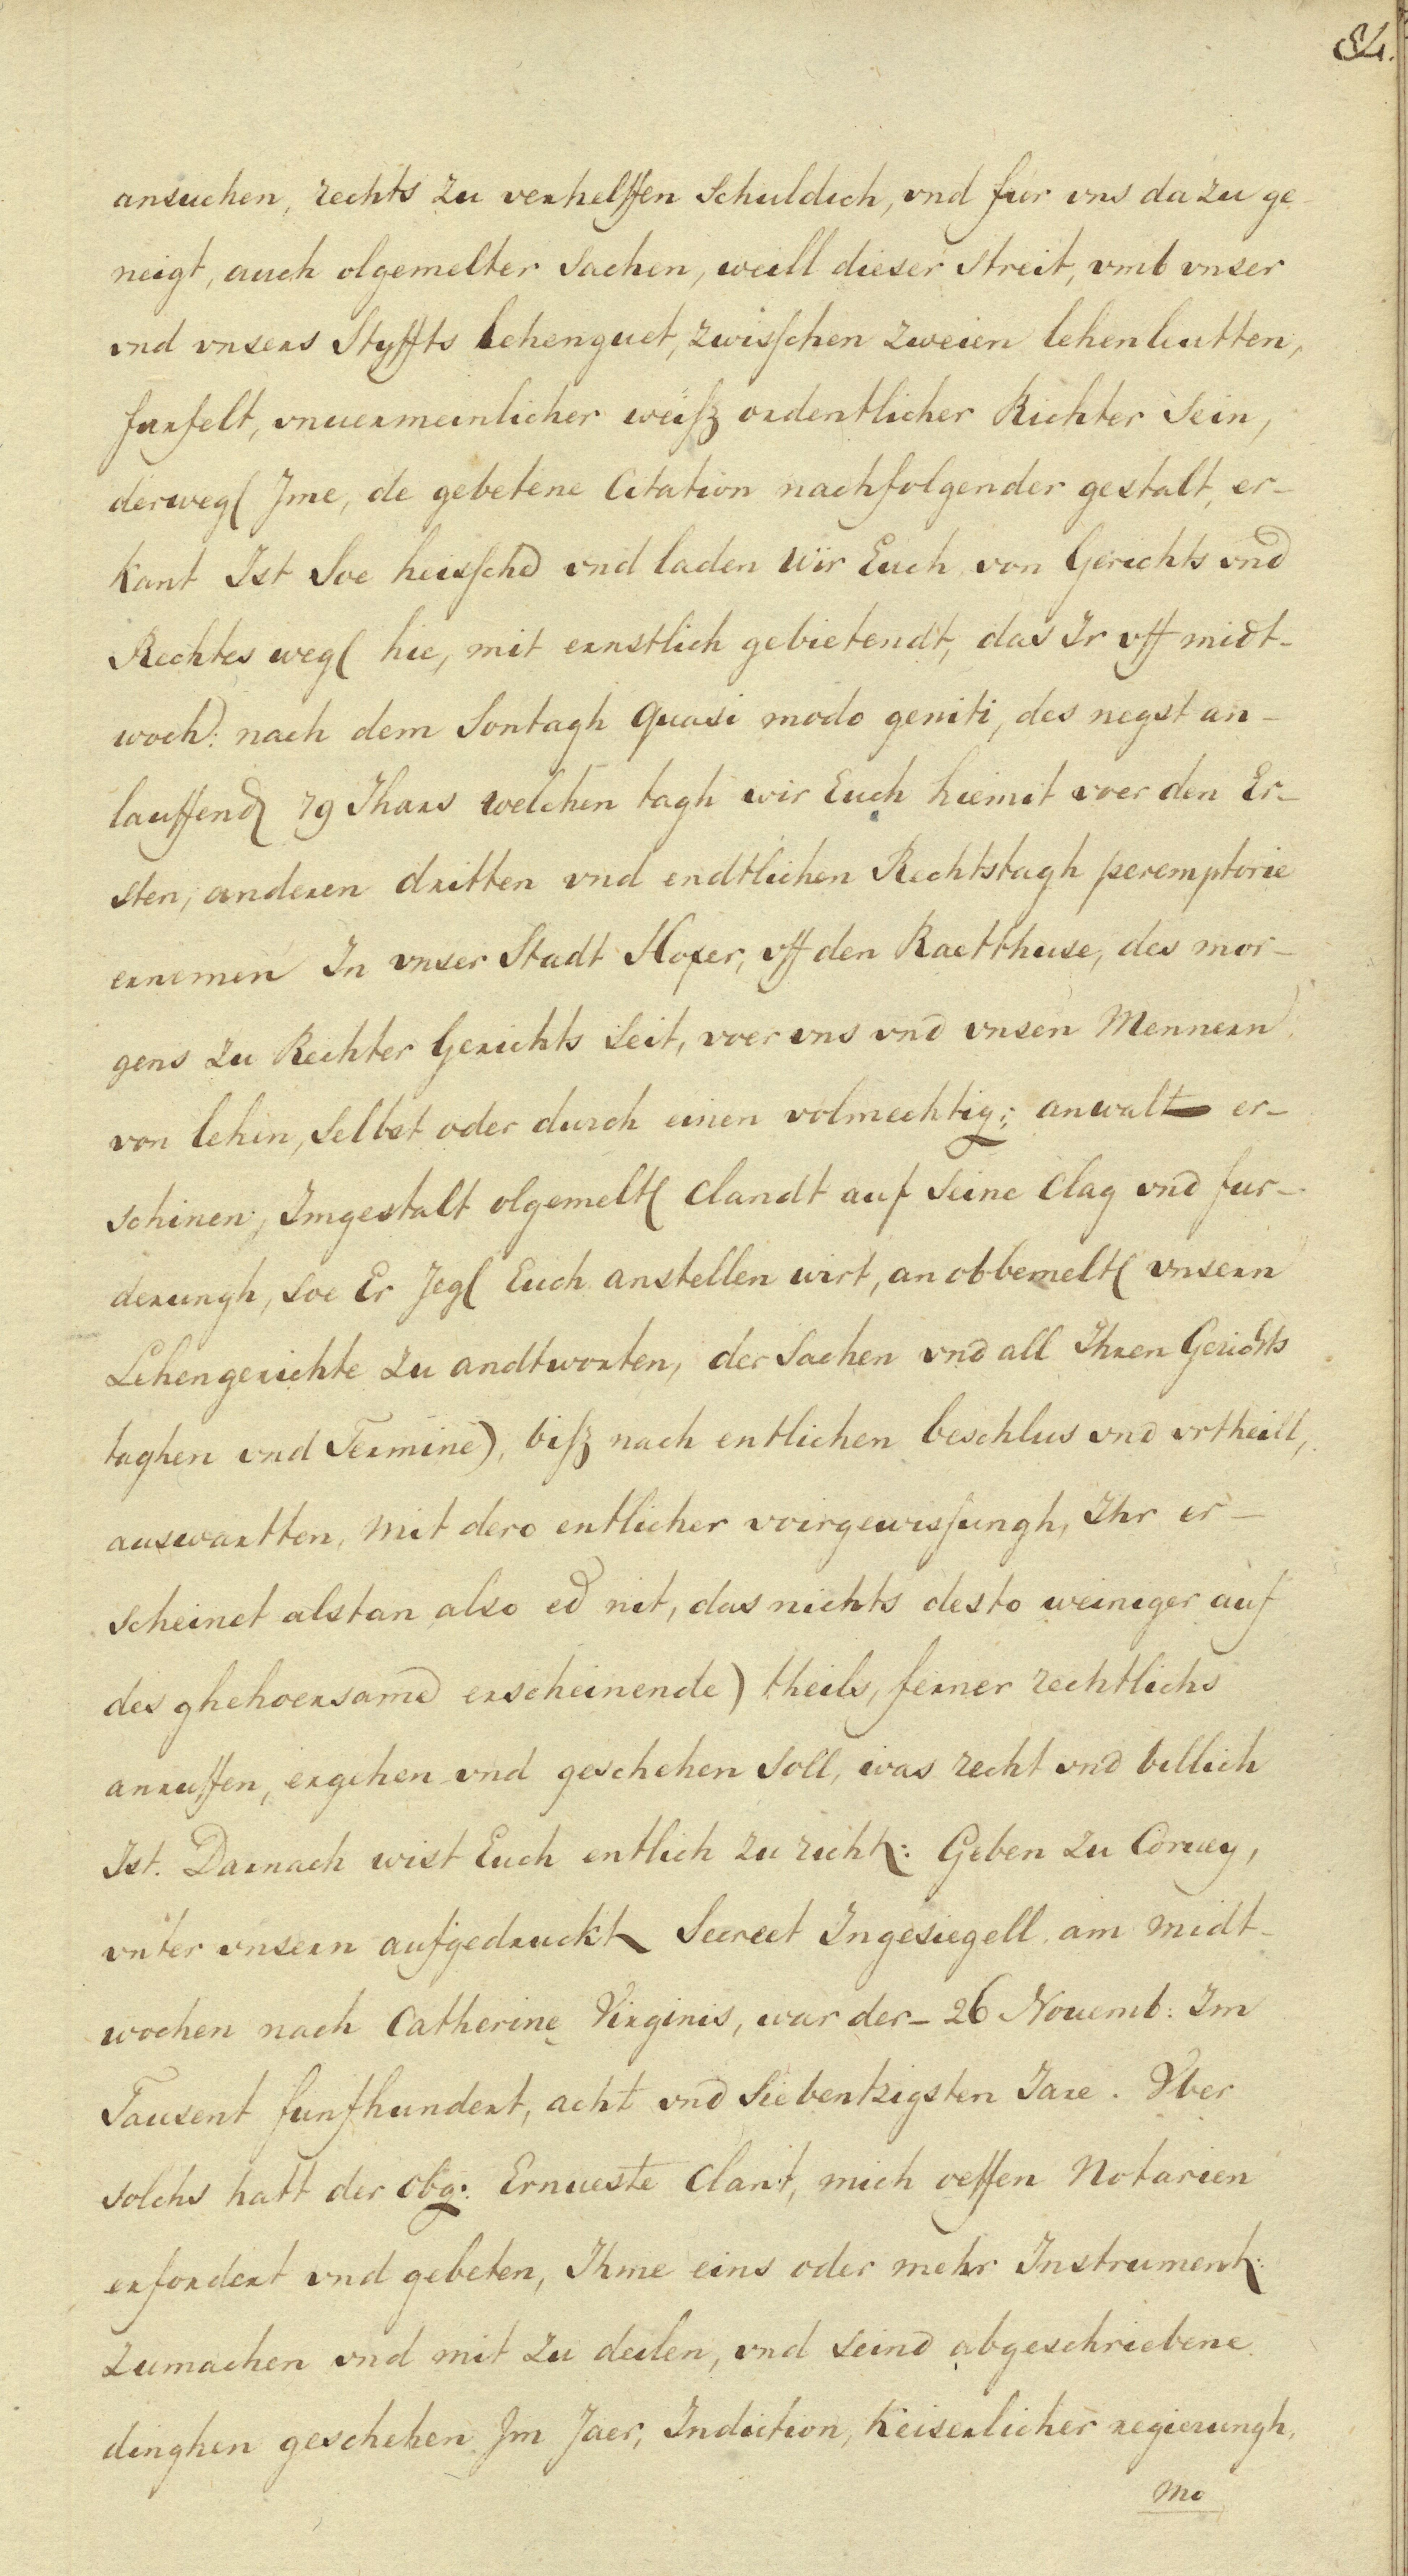 84.
ansuchen, rechts zu verhelffen Schuldich, vnd fur vns da zu ge-
neigt, auch olgemelter sachen, weill dieser streit, vmb vnser
vnd vnsers Styffts lehenguet, zwisschen zweien lehenleutten,
furfelt, vnuermeinlicher weiß ordentlicher Richter Sein,
derweg Jme, de gebetene Citation nachfolgender gestalt, er-
kant Ist Soe heissche vnd laden wir Euch von Gerichts vnd
Rechtes weg hie, mit ernstlich gebietendt, das Ir vff midt-
woch: nach dem Sontagh quasi modo geniti, des negst an-
lauffend 79 Ihars welchen tagh wir Euch hiemit voer den Er-
sten, anderen dritten vnd endtlichen Rechtstagh peremptorie
ernemen In vnser Stadt Hoxer, vff den Raetthuse, des mor-
gens zu Rechter Gerichts Seit, voer vns vnd vnsen Mennern
von lehin, Selbst oder durch einen volmechtig: anwalt er-
schinen, Imgestalt olgemelt Clandt auf Seine Clag vnd fur-
derungh, soe Er Jeg Euch anstellen wirt, an obbemelt vnsern
Lehengerichte zu andtworten, der Sachen vnd all Ihren Gerichts
taghen vnd Termine), biß nach entlichen beschlus vnd vrtheill,
auswartten, mit dero entlicher voirgewissungh, Ihr er-
scheinet alstan also ed nit, das nichts desto weiniger auf
des ghehoersame erscheinende) theils, ferner rechtlichs
anruffen, ergehen vnd geschehen Soll, was recht vnd billich
Ist. Darnach wist Euch entlich zu richt: Geben zu Coruey,
vnter vnsern aufgedruckt Secreet Ingesiegell am midt-
wochen nach Catherine Virginis, war der - 26 Nouemb: Im
Tausent funfhundert, acht vnd Siebentzigsten Jare. Vber
solchs hatt der obg: Ernueste Clant, mich oeffen Notarien
erfordert vnd gebeten, Ihme eins oder mehr Instrument:
zumachen vnd mit zu deilen, vnd seind abgeschriebene
dinghen geschehen Jm Jaer, Indiction, Keiserlicher regierungh,
Mo